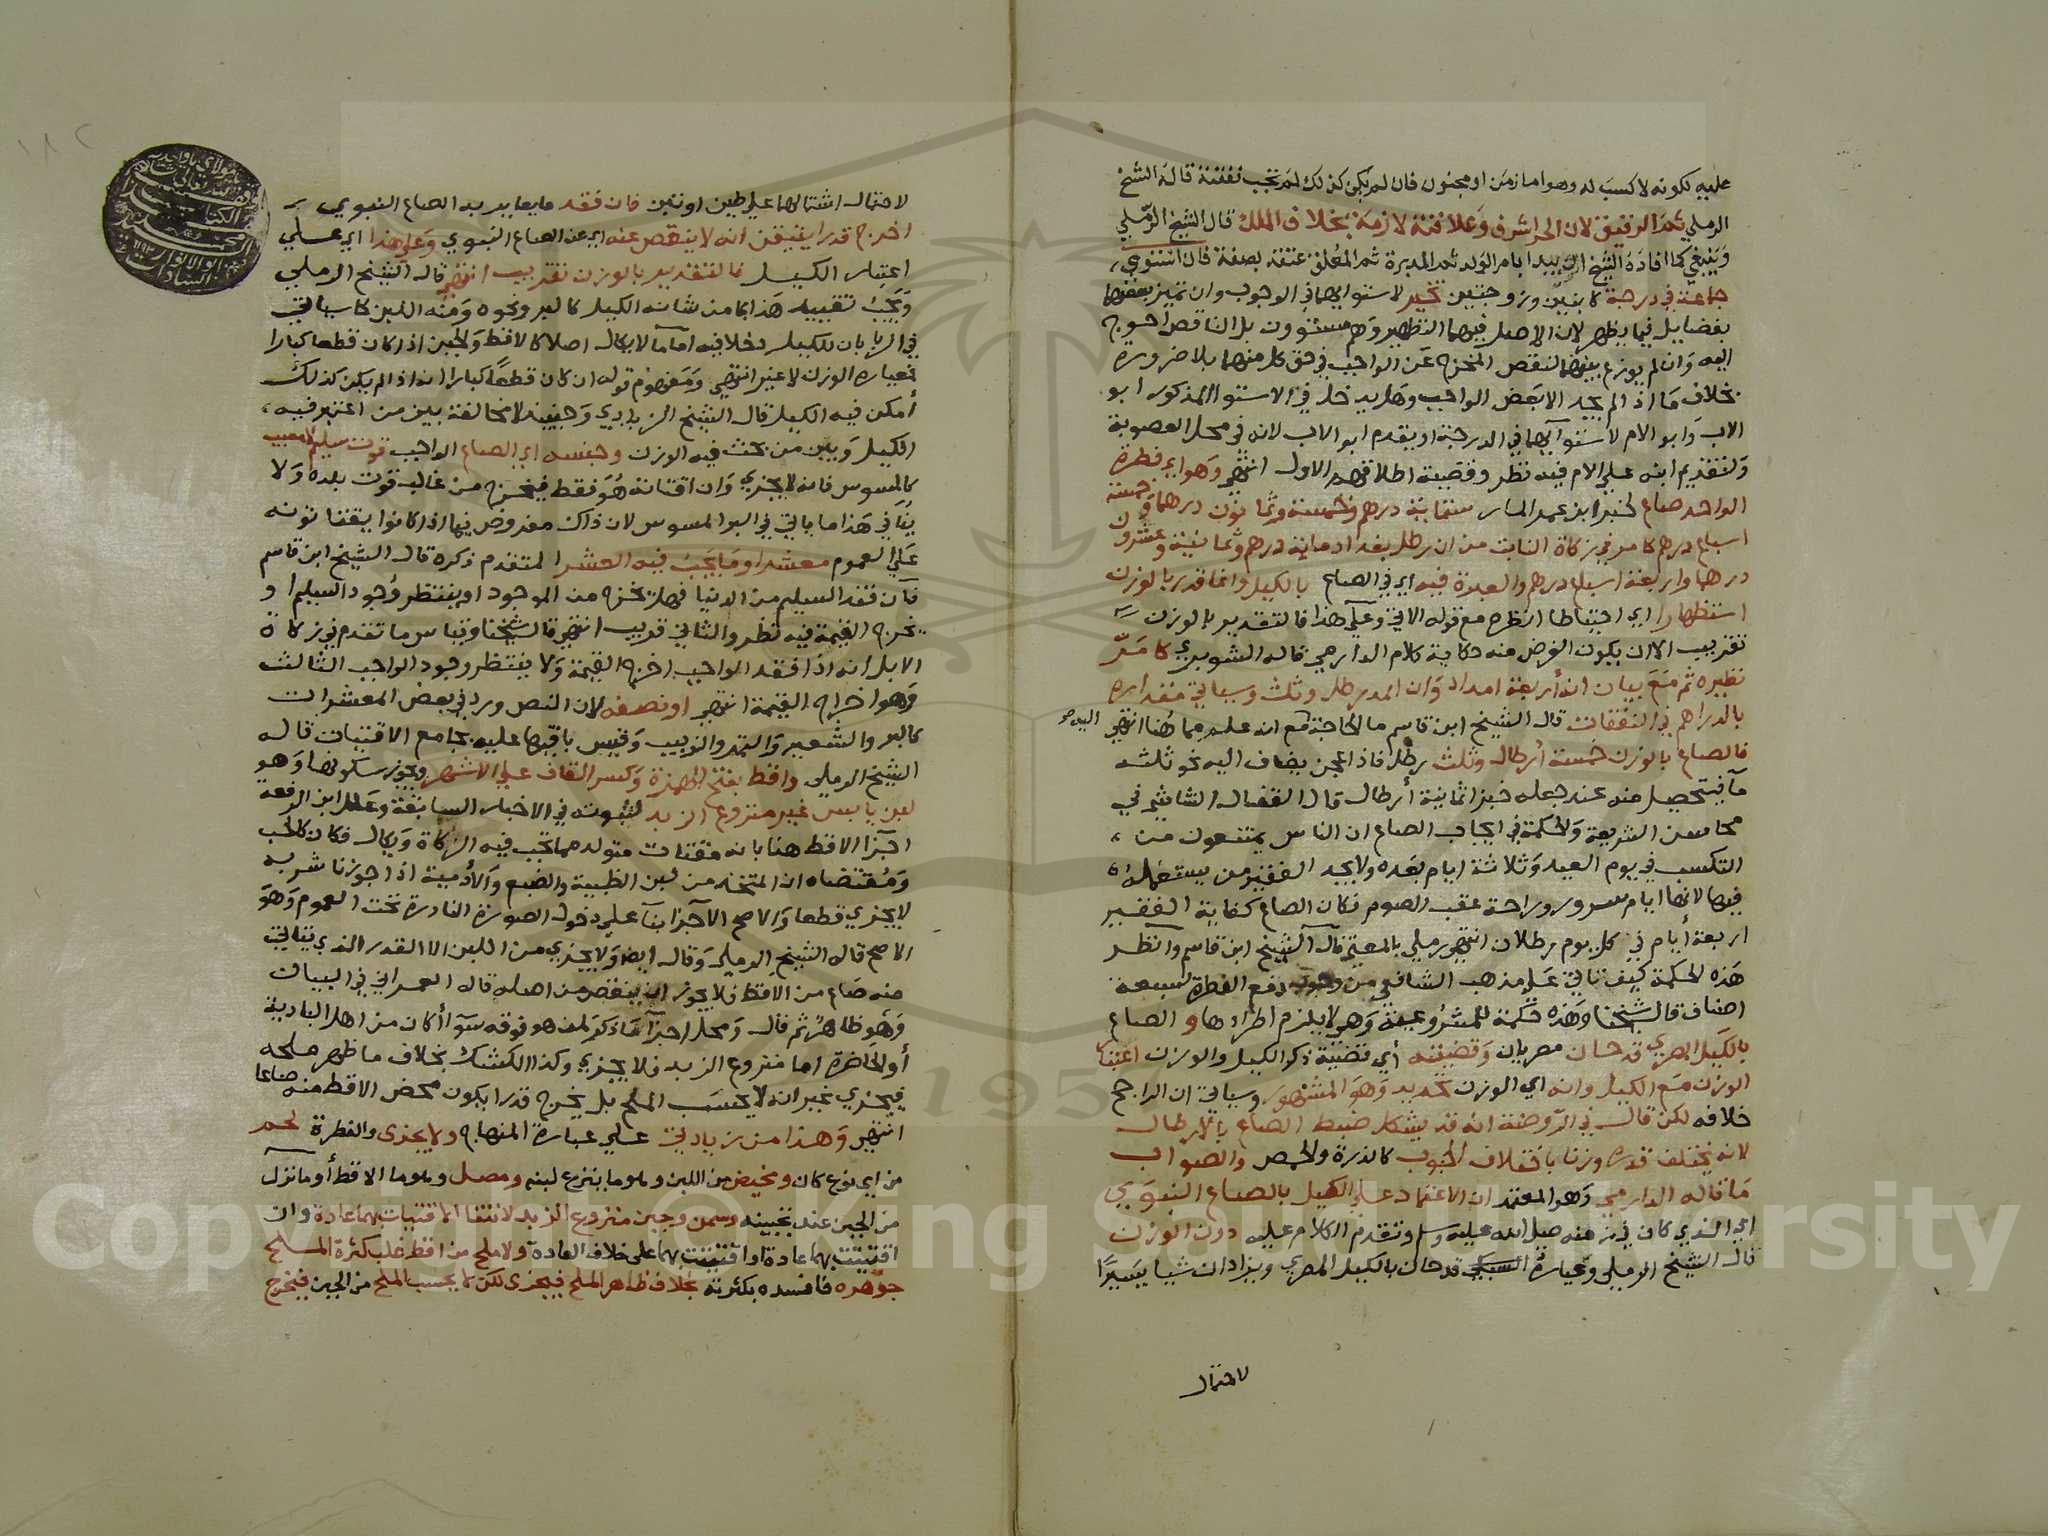 عليه لكونه لا كسب له وهو اما زمن او مجنون فان لم يكن كذلك لم تجب نفقته قاله الشيخ
الرملي ثم الرقيق لان الحر اشرف وعلاقته لازمة بخلاف الملك قال الشيخ الرملي
وينبغي كما افاده الشيخ ان يبدا بام الولد ثم المدبرة ثم المعلق عتقه بصفة فان استوي
جماعة في درجة كابنين وزوجتين تخير لاستوائهما في الوجوب وان تميز بعضهما
بفضايل فيما يظهر لان الاصل فيها التطهير وهم مستوون بل الناقص احوج
اليه وان لم يوزع بينهما لنقص المخرج عن الواجب في حق كل منهما بلا ضرورة
بخلاف ما اذا لم يجد الا بعض الواجب وهل يدخل في الاستوا المذكور ابو
الاب وابو الام لاستوائهما في الدرجة او يقدم ابو الاب لانه في محل العصوبة
ولتقديم ابنه علي الام فيه نظر وقضية اطلاقهم الاول انتهي وهو اي فطرة
الواحد صاع لخبر ابن عمر المار ستماية درهم وخمسة وثمانون درهما وخمسة
اسباع درهم كما مر في زكاة النابت من ان رطل بغداد ماية درهم وثمانية وعشرون
درهما واربعة اسباع درهم والعبرة فيه اي في الصاع بالكيل وانما قدر بالوزن
استظهارا اي احتياطا انظره مع قوله الاتي وعلي هذا فالتقدير بالوزن
تقريب الا ان يكون الغرض منه حكاية كلام الدارمي قاله الشوبري كما مر
نظيره ثم مع بيان انه اربعة امداد وان المد رطل وثلث وسياتي مقداره
بالدراهم في النفقات قال الشيخ ابن قاسم ما الحاجة مع انه علم مما هنا انتهي
فالصاع بالوزن خمسة أرطال وثلث رطل فاذا عجن يضاف اليه نحو ثلثه
مآ فيتحصل منه عند جعله خبزا ثمانية أرطال قال القفال الشاشي في
محاسن الشريعة والحكمة في ايجاب الصاع ان الناس يمتنعون من
التكسب في يوم العيد وثلاثة ايام بعده ولا يجد الفقير من يستعمله
فيها لانها ايام سرور وراحة عقب الصوم فكان الصاع كفاية الفقير
اربعة أيام في كل يوم رطلان انتهي رملي بالمعني قال الشيخ ابن قاسم وانظر
هذه الحكمة كيف تاتي علي مذهب الشافعي من وجوب دفع الفطرة لسبعة
اصناف قال شيخنا وهذه حكمة للمشروعية وهي لا يلزم اطرادها و الصاع
بالكيل المصري قدحان مصريان وقضيته أي قضية ذكر الكيل والوزن اعتبار
الوزن مع الكيل وانه اي الوزن تحديد وهو المشهور وسياتي ان الراجح
خلافه لكن قال في الروضة انه قد يشكل ضبط الصاع بالارطال
لانه يختلف قدره وزنا باختلاف الحبوب كالذرة والحمص والصواب
ما قاله الدارمي وهو المعتمد ان الاعتماد علي الكيل بالصاع النبوي
اي الذي كان في زمنه صلي الله عليه وسلم وتقدم الكلام عليه دون الوزن
قال الشيخ الرملي وعبارة السبكي قدحان بالكيل المصري ويزادان شيا يسيرا
لاحتمال
لاحتمال اشتمالهما علي طين او تبن فان فقد ما يعاير به الصاع النبوي
اخرج قدرا يتيقن انه لا ينقص عنه اي عن الصاع النبوي وعلي هذا اي علي
اعتبار الكيل فالتقدير بالوزن تقريب انتهي قال الشيخ الرملي
ويجب تقييد هذا بما من شانه الكيل كالبر ونحوه ومنه اللبن كما سياتي
في الربا بان للكيل دخلا فيه اما ما لا يكال اصلا كالاقط والجبن اذا كان قطعا كبارا
فمعياره الوزن لا غير انتهي ومفهوم قوله ان كان قطعا كبارا انه اذا لم يكن كذلك
أمكن فيه الكيل قال الشيخ الزيادي وحينيذ لا مخالفة بين من اعتبر فيه
الكيل وبين من بحث فيه الوزن وجنسه اي الصاع الواجب قوت سليم لا معيب
كالمسوس فانه لا يجزي وان اقتاته هو فقط فيخرج من غالب قوت بلده ولا
ينافي هذا ما ياتي في البر المسوس لان ذاك مفروض فيما اذا كانوا يقتاتونه
علي العموم معشر او ما يجب فيه العشر المتقدم ذكره قال الشيخ ابن قاسم
فان فقد السليم من الدنيا فهل يخرج من الموجود او ينتظر وجود السليم او
يخرج القيمة فيه نظر والثاني قريب انتهي قال شيخنا وقياس ما تقدم في زكاة
الابل انه اذا فقد الواجب اخرج القيمة ولا ينتظر وجود الواجب الثالث
وهو اخراج القيمة انتهي او نصفه لان النص ورد في بعض المعشرات
كالبر والشعير والتمر والزبيب وقيس باقيها عليه بجامع الاقتيات قاله
الشيخ الرملي واقط بفتح الهمزة وكسر القاف علي الاشهر ويجوز سكونها وهو
لبن يابس غير منزوع الزبد لثبوته في الاخبار السابقة وعلل ابن الرفعة
اجزا الاقط هنا بانه مقتات متولد مما تجب فيه الزكاة ويكال فكان كالحب
ومقتضاه ان المتخذ من لبن الظبية والضبع والآدمية اذا جوزنا شربه
لا يجزي قطعا والاصح الاجزا بنا علي دخول الصورة النادرة تحت العموم وهو
الاصح قاله الشيخ الرملي وقال ايضا ولا يجزي من اللبن الا القدر الذي يتاتي
منه صاع من الاقط فلا يجوز ان ينقص من اصله قاله العمراني في البيان
وهو ظاهر ثم قال ومحل اجزآ ما ذكر لمن هو قوته سوآ أكان من اهل البادية
أو الحاضرة اما منزوع الزبد فلا يجزي وكذا الكشك بخلاف ما ظهر ملحه
فيجزي غير انه لا يحسب الملح بل يخرج قدرا يكون محض الاقط منه صاعا
انتهي وهذا من زيادتي علي عبارة المنهاج ولا يجزى والفطرة لحم
من اي نوع كان ومخيض من اللبن وهو ما ينزع لبنه ومصل وهو ما الاقط أو ما نزل
من الجبن عند تجبينه وسمن وجبن منزوع الزبد لانتفا الاقتيات بها عادة وان
اقتيتت بها عادة او اقتيتت بها على خلاف العادة ولا مملح من اقط غلب كثرة الملح
جوهره فافسده بكثرته بخلاف ظاهر الملح فيجزى لكن لا يحسب الملح من الجبن فيخرج